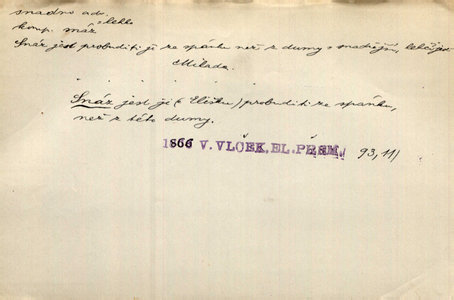 snadno adv.
komp. snáz = lehko
Snáz jest probuditi ji ze spánku než z dumy = snadnější, lehčí jest
Milada.
Snáz jest ji (t. Elišku) probuditi ze spánku,
než z této dumy.
1866 V. VLČEK, EL. PŘEM. 93, 11)